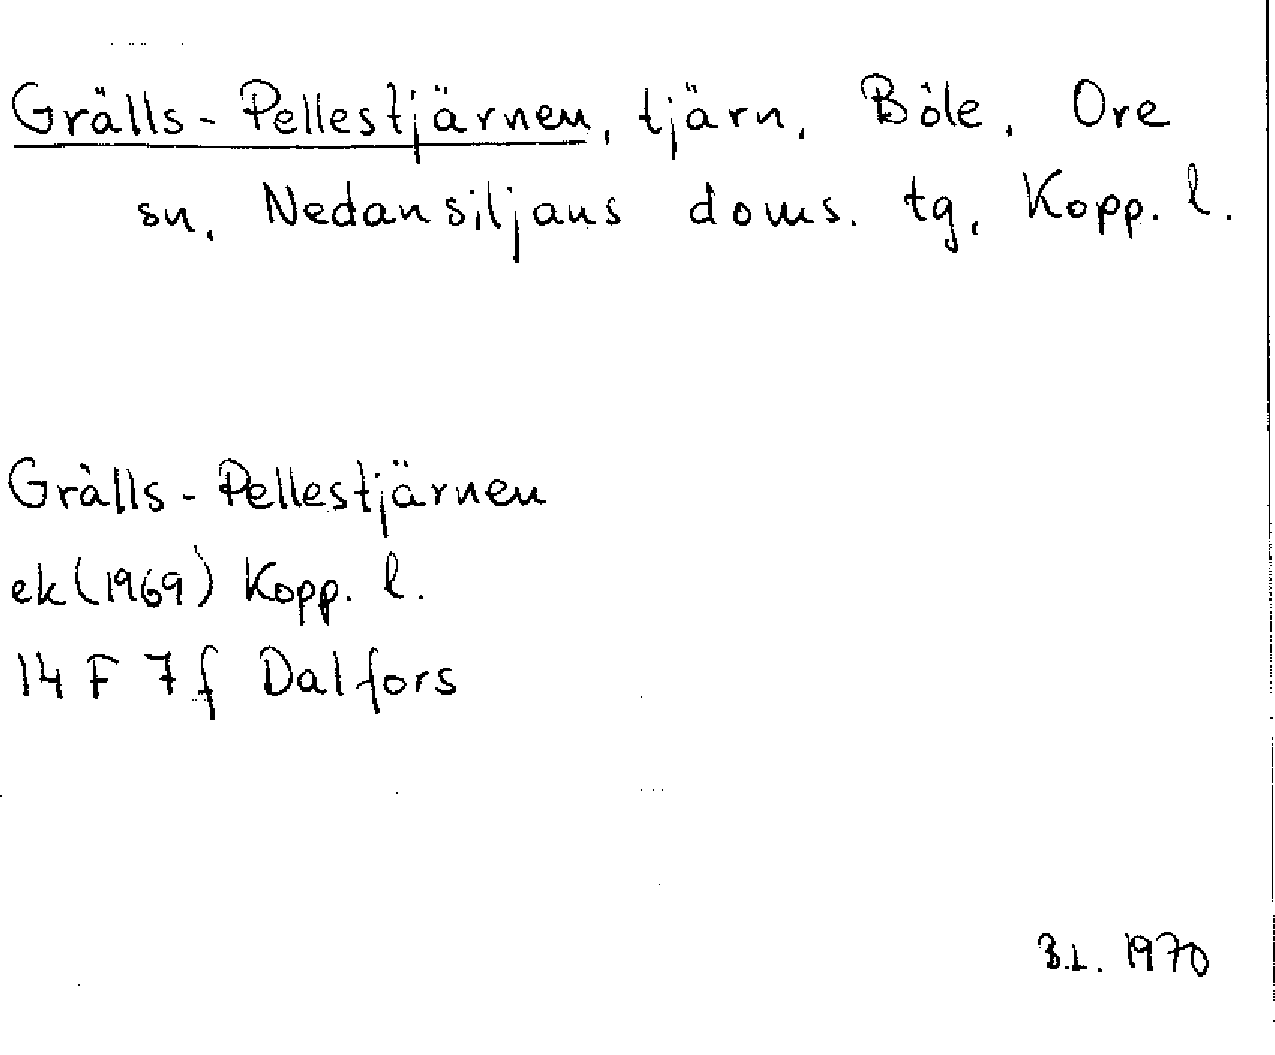 Grälls-Pellestjärnen, tjärn, Böle, Ore
sn, Nedansiljans doms. tg, Kopp. l.
Grälls-Pellestjärnen
ek (1969) Kopp. l.
14 F 7 f Dalfors
B.L. 1970